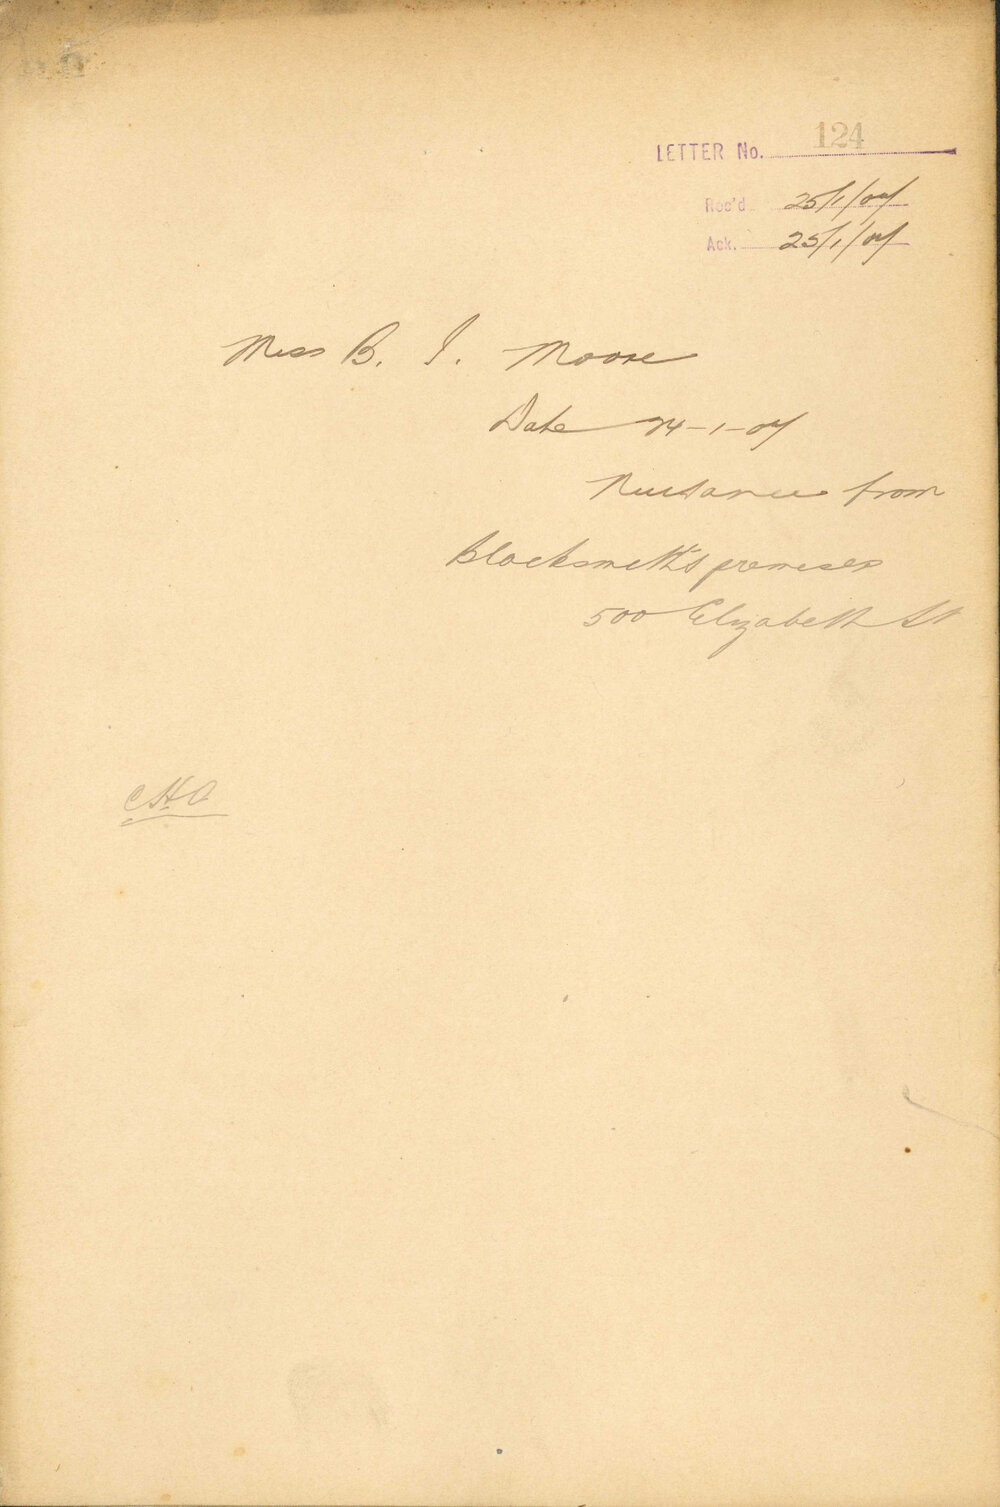 LETTER No. 124
Rec'd 25/1/07
Ack. 25/1/07
Miss B. I. Moore
Date 24-1-07
Nuisance from
Blacksmith's premises
500 Elizabeth St
CHO